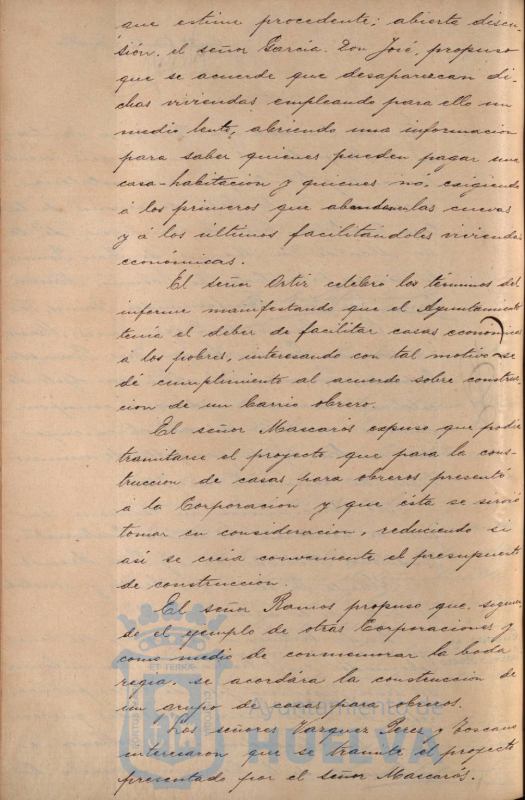 que estime procedente; abierta discu-
sión, el señor García Don José, propuso
que se acuerde que desaparezcan di-
chas viviendas empleando para ello un
medio lento, abriendo una informacion
para saber quienes pueden pagar una
casa-habitacion y quienes nó, exigiendo
á los primeros que abandonen las cuevas
y á los últimos facilitándoles viviendas
económicas.
El señor Ortiz celebró los términos del
informe manifestando que el Ayuntamiento
tenia el deber de facilitar casas económicas
á los pobres, interesando con tal motivo se
dé cumplimiento al acuerdo sobre construc-
cion de un barrio obrero.
El señor Mascarós expuso que podia
tramitarse el proyecto que para la cons-
truccion de casas para obreros presentó
á la Corporacion y que ésta se sirvió
tomar en consideracion, reduciendo si
así se creia conveniente el presupuesto
de construccion.
El señor Ramos propuso que siguien-
do el ejemplo de otras Corporaciones y
como medio de conmemorar la boda
regia, se acordára la construccion de
un grupo de casas para obreros.
Los señores Vazquez Perez y Toscano
interesaron que se tramite el proyecto
presentado por el señor Mascarós.
Ayuntamiento de
HUELVA